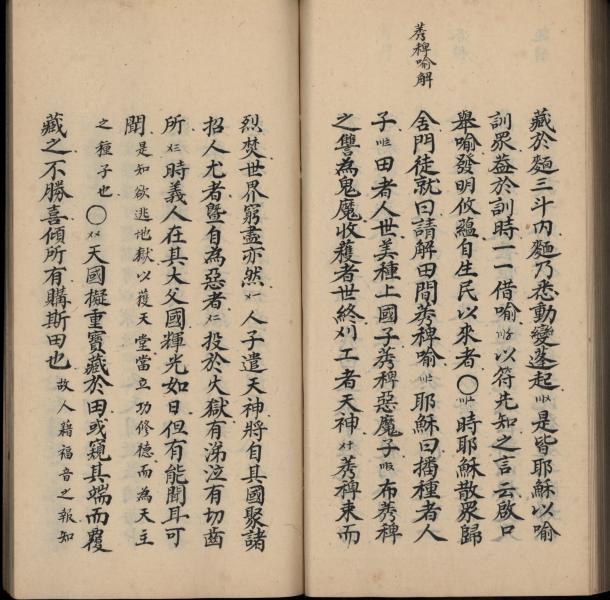 莠稗喻解
藏於麵三斗內麵乃悉動變蓬起〣〤是皆耶穌以喻
訓眾益於訓時一一借喻〣〥以符先知之言云啟口
舉喻發明攸蘊自生民以來者〇〣〦時耶穌散眾歸
舍門徒就曰請解田間莠稗喻〣〧耶穌曰播種者人
子〣〨田者人世美種上國子莠稗惡魔子〣〩布莠稗
之讐為鬼魔收穫者世終刈工者天神〤十莠稗束而
烈焚世界窮盡亦然〤一人子遣天神將自其國聚諸
招人尤者暨自為惡者〤二投於火獄有涕泣有切齒
所〤三時義人在其大父國輝光如日但有能聞耳可
聞是知欲逃地獄以獲天堂當立功修德而為天主
之種子也〇〤〤天國擬重寶藏於田或窺其端而覆
藏之不勝喜傾所有購斯田也故人籍福音之報知